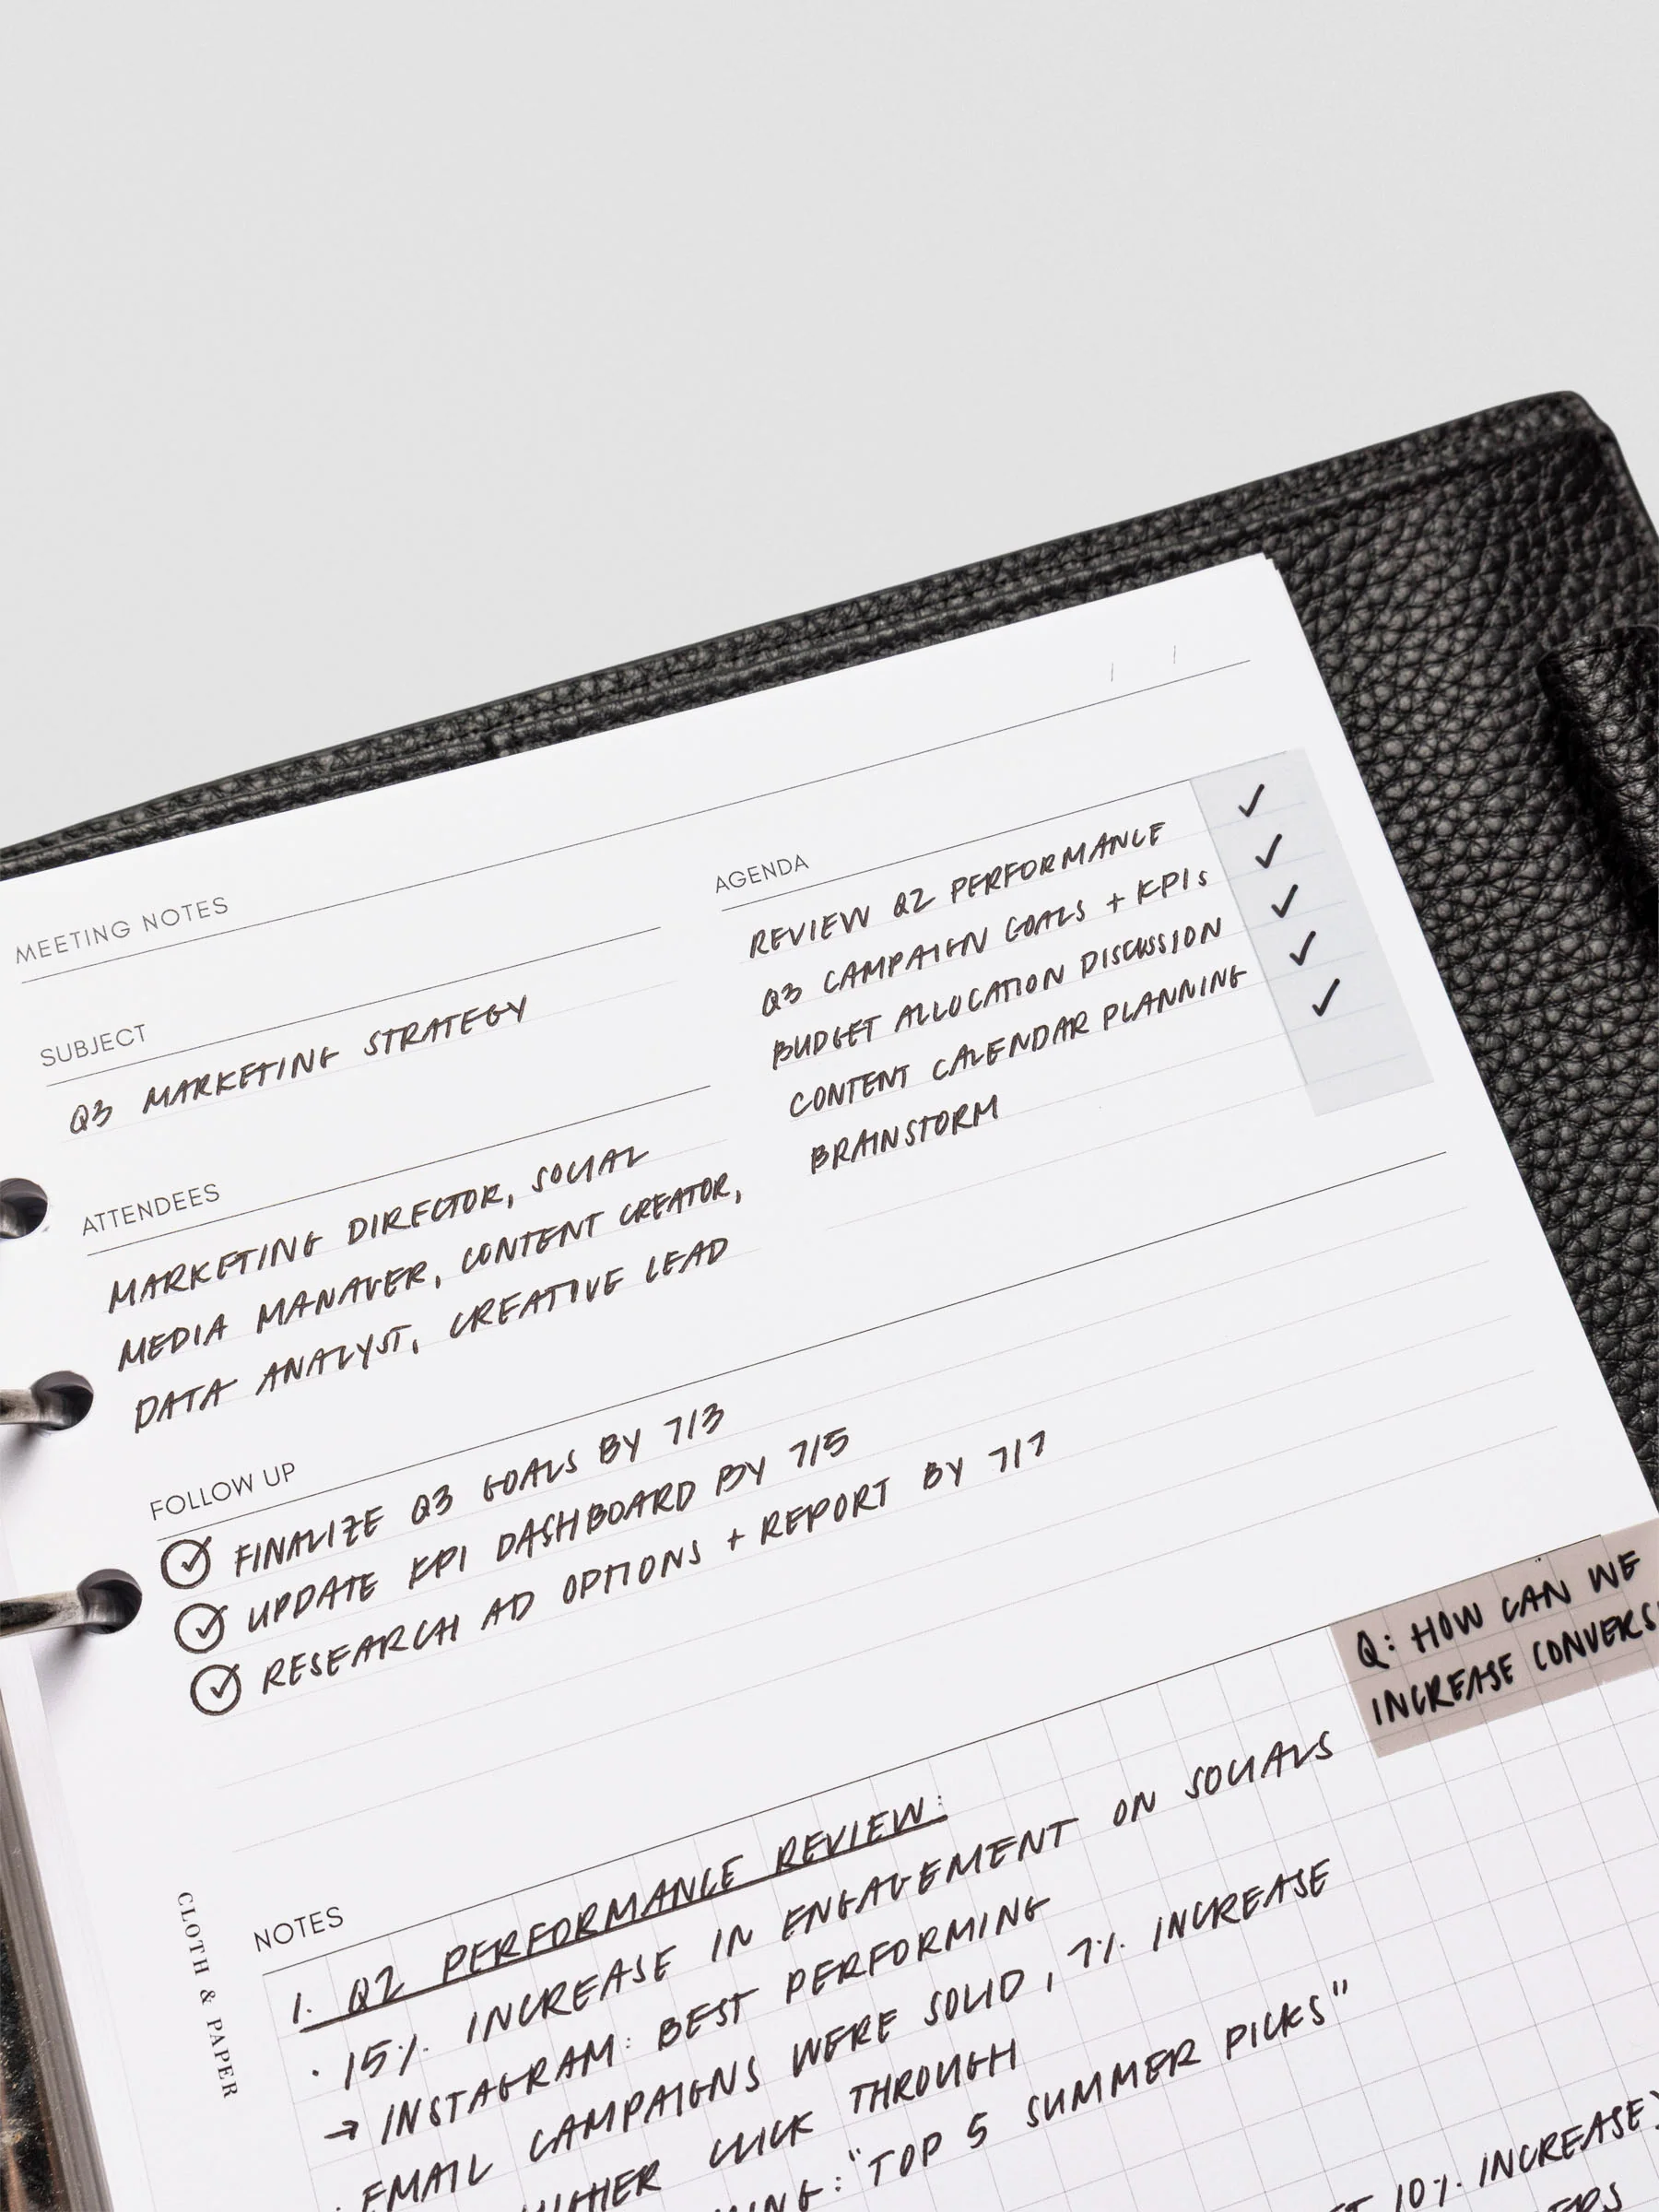 MEETING NOTES
SUBJECT
Q3 MARKETING STRATEGY
ATTENDEES
MARKETING DIRECTOR, SOCIAL
MEDIA MANAGER, CONTENT CREATOR,
DATA ANALYST, CREATIVE LEAD
AGENDA
REVIEW Q2 PERFORMANCE ✓
Q3 CAMPAIGN GOALS + KPIs ✓
BUDGET ALLOCATION DISCUSSION ✓
CONTENT CALENDAR PLANNING ✓
BRAINSTORM ✓
FOLLOW UP
FINALIZE Q3 GOALS BY 7/3
UPDATE KPI DASHBOARD BY 7/5
RESEARCH AD OPTIONS + REPORT BY 7/7
Q: HOW CAN WE
INCREASE CONVERS
NOTES
1. Q2 PERFORMANCE REVIEW:
• 15% INCREASE IN ENGAGEMENT ON SOCIALS
→ INSTAGRAM: BEST PERFORMING
• EMAIL CAMPAIGNS WERE SOLID, 7% INCREASE
CLICK THROUGH
: "TOP 5 SUMMER PICKS"
10% INCREASE)
CLOTH & PAPER